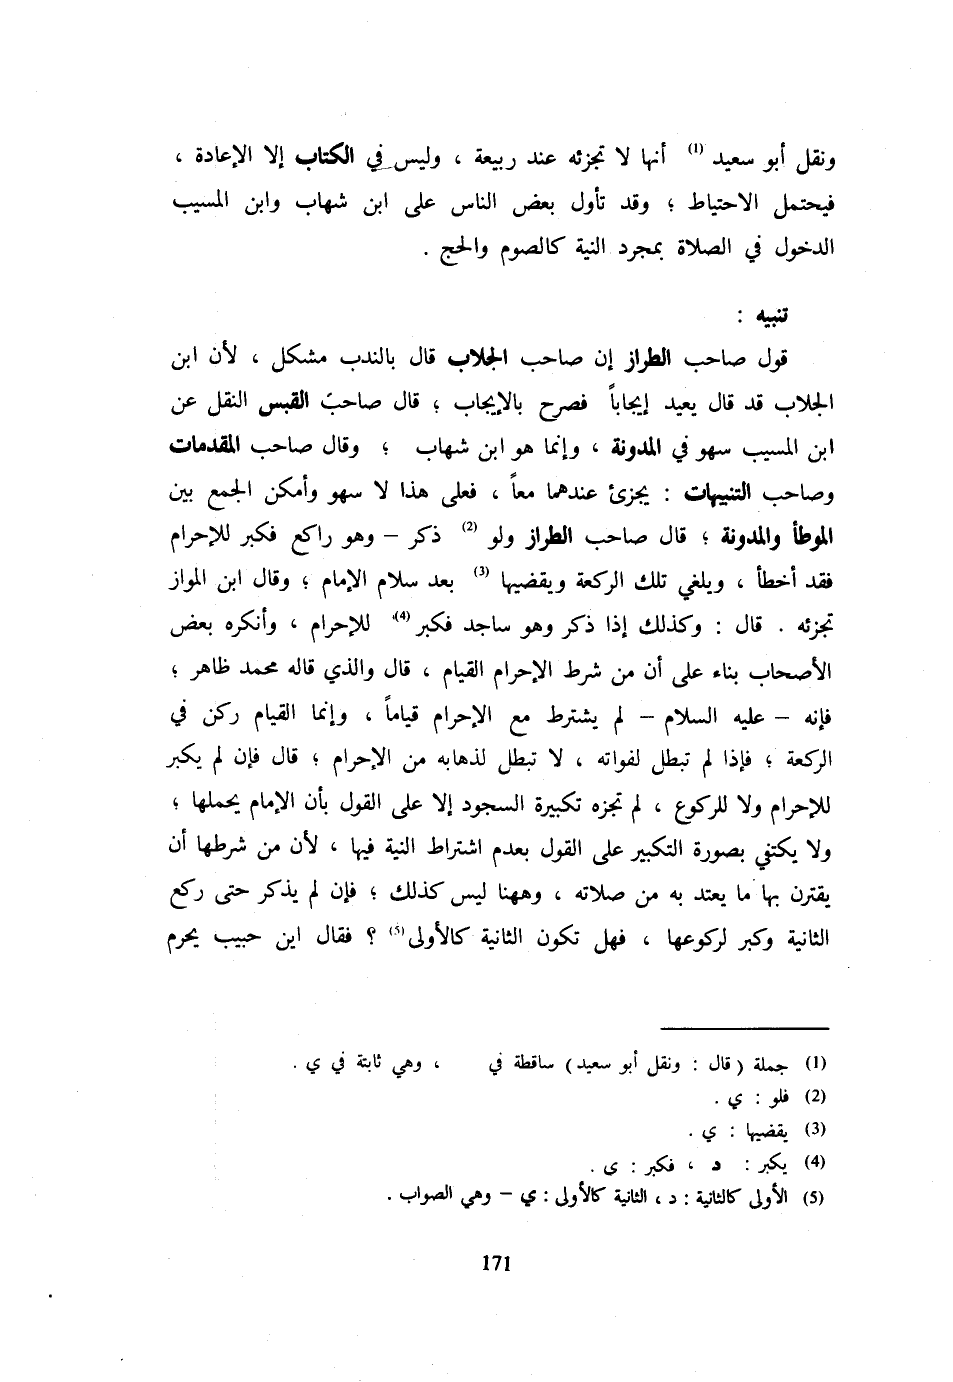 ونقل أبو سعيد (1) أنها لا تجزئه عند ربيعة ، وليس في الكتاب إلا الإعادة ،
فيحتمل الاحتياط ؛ وقد تأول بعض الناس على ابن شهاب وابن المسيب
الدخول في الصلاة بمجرد النية كالصوم والحج .
تنبيه :
قول صاحب الطراز إن صاحب الجلاب قال بالندب مشكل ، لأن ابن
الجلاب قد قال يعيد إيجاباً فصرح بالإيجاب ؛ قال صاحب القبس النقل عن
ابن المسيب سهو في المدونة ، وإنما هو ابن شهاب ؛ وقال صاحب المقدمات
وصاحب التنبيهات : يجزئ عندهما معاً ، فعلى هذا لا سهو وأمكن الجمع بين
الموطأ والمدونة ؛ قال صاحب الطراز ولو (2) ذكر – وهو راكع فكبر للإحرام
فقد أخطأ ، ويلغي تلك الركعة ويقضيها (3) بعد سلام الإمام ؛ وقال ابن المواز
تجزئه . قال : وكذلك إذا ذكر وهو ساجد فكبر (4) للإحرام ، وأنكره بعض
الأصحاب بناء على أن من شرط الإحرام القيام ، قال والذي قاله محمد ظاهر ؛
فإنه – عليه السلام – لم يشترط مع الإحرام قياماً ، وإنما القيام ركن في
الركعة ؛ فإذا لم تبطل لفواته ، لا تبطل لذهابه من الإحرام ؛ قال فإن لم يكبر
للإحرام ولا للركوع ، لم تجزه تكبيرة السجود إلا على القول بأن الإمام يحملها ؛
ولا يكتفي بصورة التكبير على القول بعدم اشتراط النية فيها ، لأن من شرطها أن
يقترن بها ما يعتد به من صلاته ، وههنا ليس كذلك ؛ فإن لم يذكر حتى ركع
الثانية وكبر لركوعها ، فهل تكون الثانية كالأولى (5) ؟ فقال ابن حبيب يحرم
(1) جملة (قال : ونقل أبو سعيد) ساقطة في ، وهي ثابتة في ي .
(2) فلو : ي .
(3) يقضيها : ي .
(4) يكبر : د ، فكبر : ى .
(5) الأولى كالثانية : د ، الثانية كالأولى : ي – وهي الصواب .
171